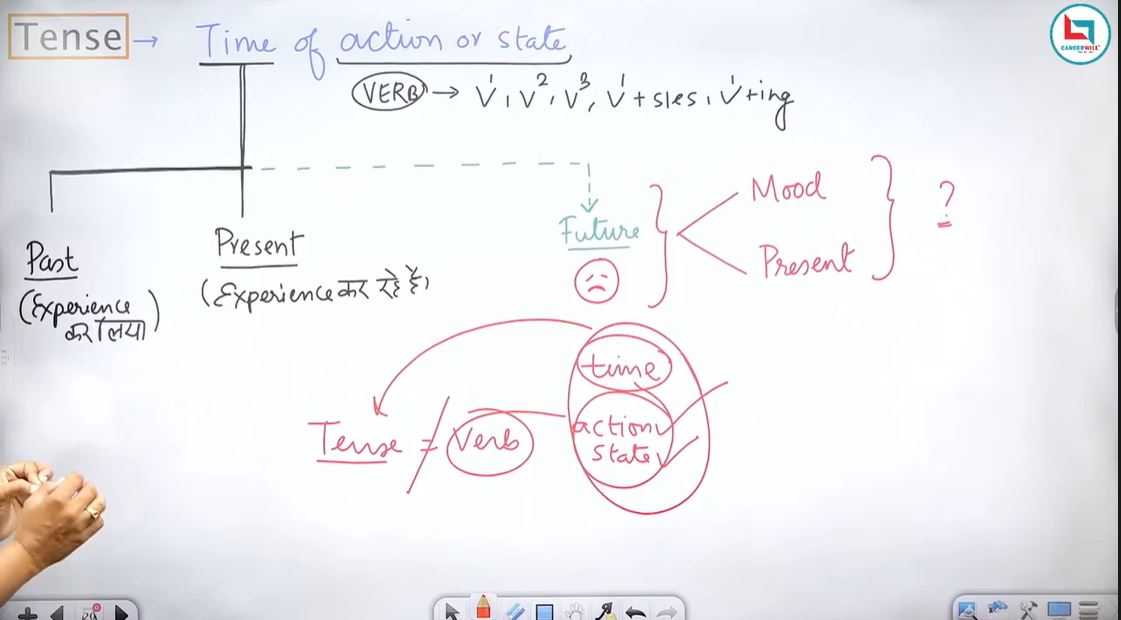 Tense → Time of action or state
CAREERWILL
VERB → V¹, V², V³, V¹+s/es, V¹+ing
Past
(Experience
कर लिया)
Present
(Experience कर रहे हैं)
Future
Mood
Present
?
time
action
state
Tense ≠ Verb